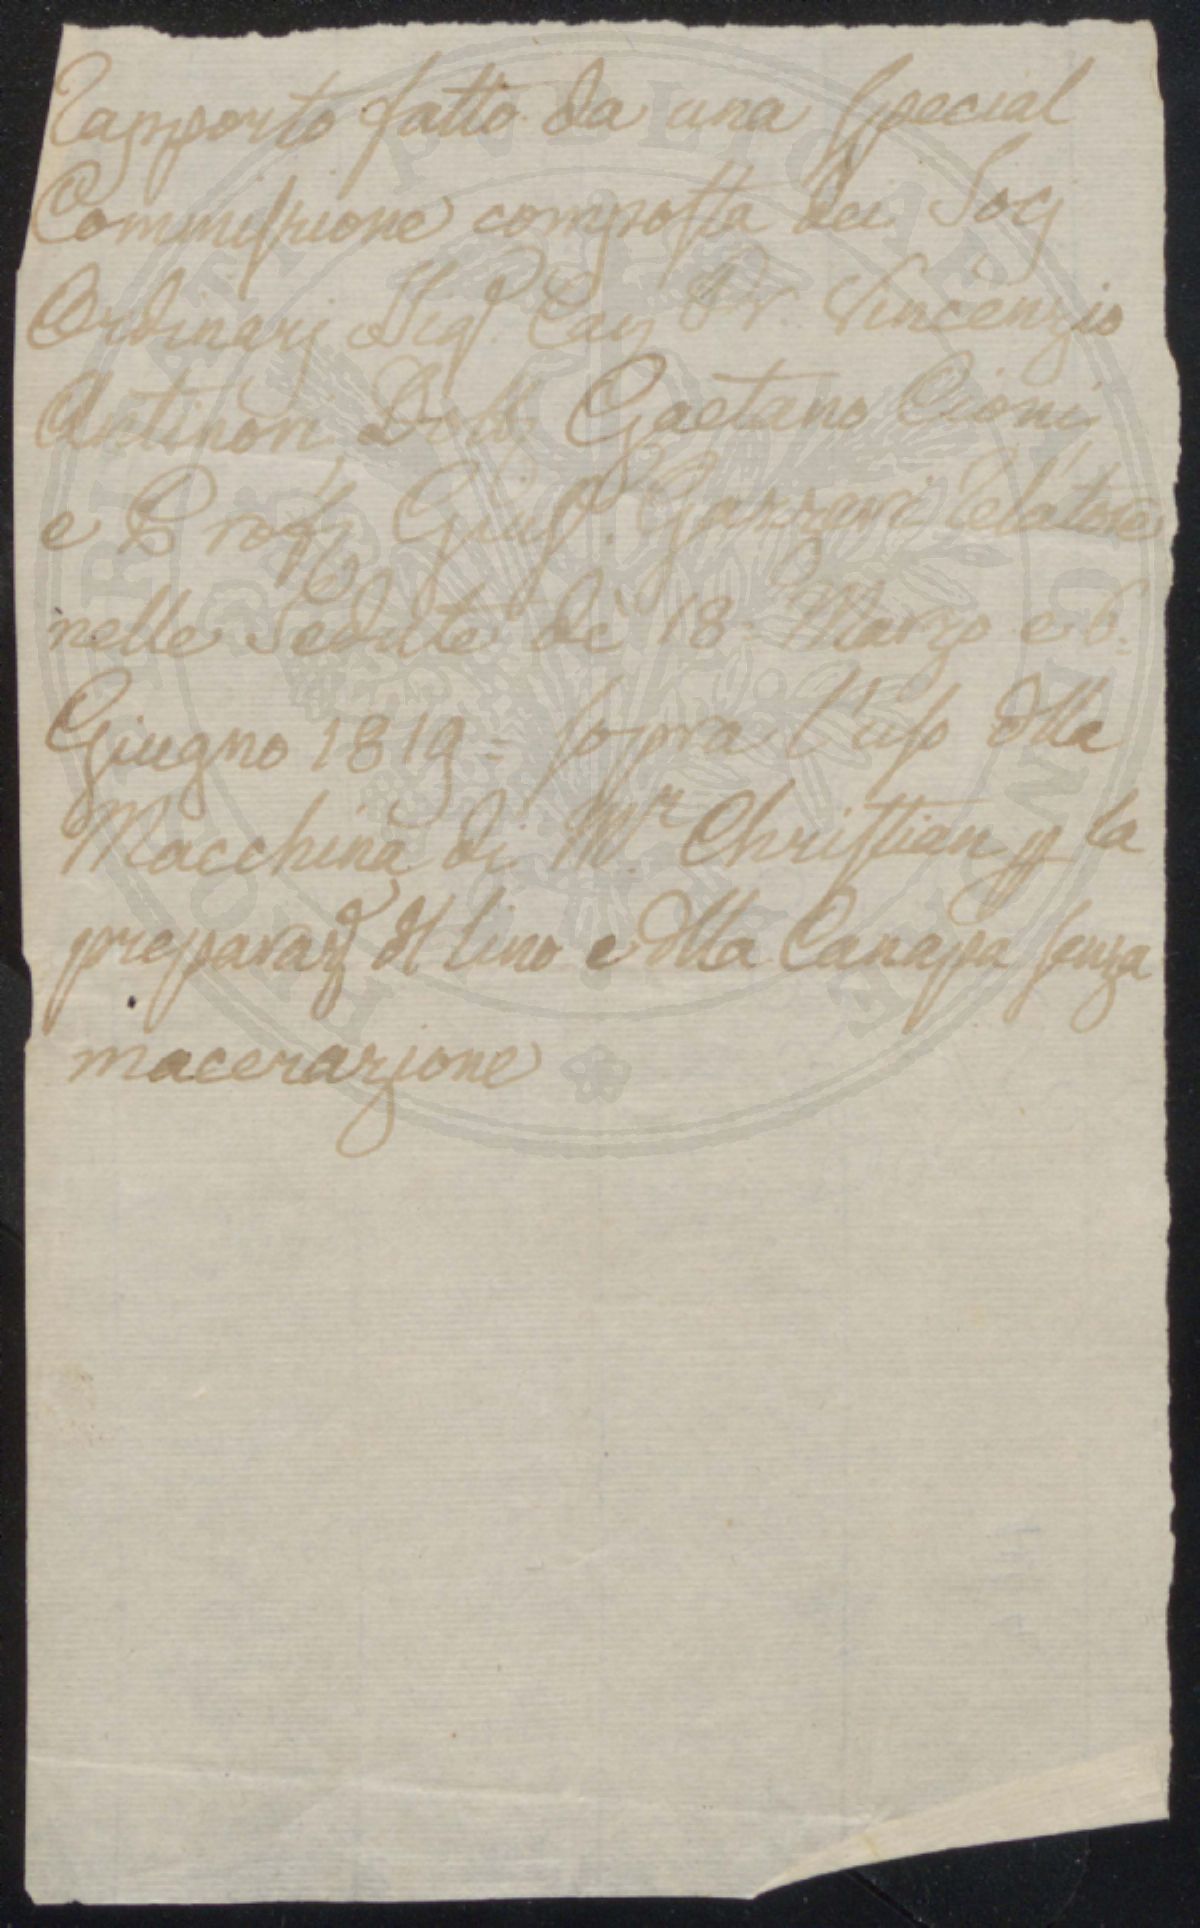 Rapporto fatto da una special
Commissione composta dei Socj
Ordinarj Sigr. Cav Pr. Vincenzio
Antinori Dott Gaetano Cioni
e Profr Gius. Gazzeri Relatore
nelle Sedute de' 18. Marzo e 6.
Giugno 1819 = sopra l'uso dlla
Macchina di Mr. Christian p la
preparaz dl lino e dlla Canapa senza
macerazione